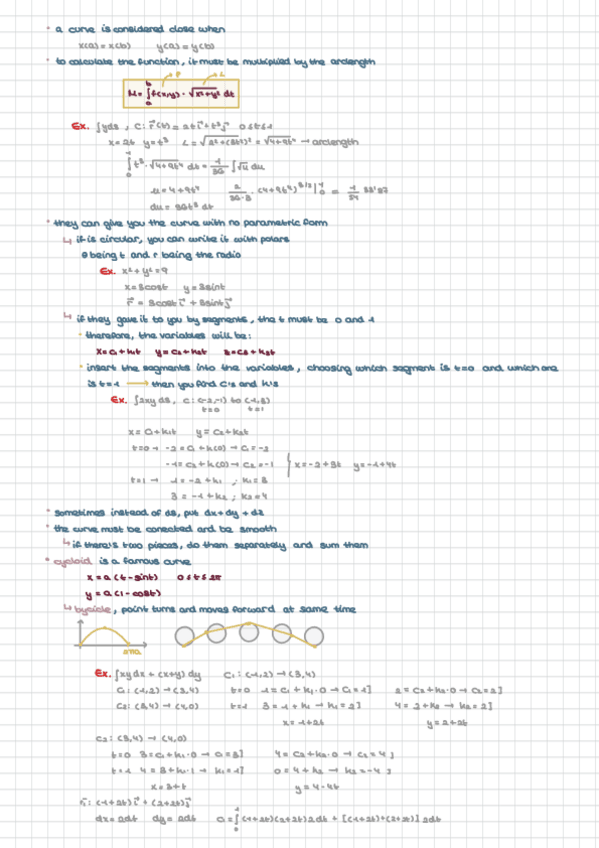 * a curve is considered close when
x(a) = x(b)   y(a) = y(b)
* to calculate the function, it must be multiplied by the arclength
F   L
M = ∫ₐᵇ f(x,y) · √x²+y² dt
Ex. ∫yds , C: r⃗(t) = 2t i⃗ + t³ j⃗   0≤t≤1
x=2t   y=t³   L = √2²+(3t²)² = √4+9t⁴ → arclength
∫₀¹ t³ · √4+9t⁴ dt = 1/36 ∫√u du
u = 4+9t⁴   2/36·3 · (4+9t⁴)^3/2 |₀¹ = 1/54
du = 36t³ dt
* they can give you the curve with no parametric form
↳ if is circular, you can write it with polars
θ being t and r being the radio
Ex. x²+y²=9
x=3cost   y=3sint
r⃗ = 3cost i⃗ + 3sint j⃗
↳ if they gave it to you by segments, the t must be 0 and 1
* therefore, the variables will be:
x=C₁+k₁t   y=C₂+k₂t   z=C₃+k₃t
* insert the segments into the variables, choosing which segment is t=0 and which one
is t=1 → then you find C's and k's
Ex. ∫2xy ds, C: (-2,-1) to (1,3)
t=0   t=1
x = C₁+k₁t   y = C₂+k₂t
t=0 → -2 = C₁+k(0) → C₁=-2
-1 = C₂+k(0) → C₂=-1   x=-2+3t   y=-1+4t
t=1 → 1=-2+k₁ ; k₁=3
3 = -1+k₂ ; k₂=4
* sometimes instead of ds, put dx+dy+dz
* the curve must be conected and be smooth
↳ if there's two pieces, do them separately and sum them
* cycloid is a famous curve
x = a(t-sint)   0≤t≤2π
y = a(1-cost)
↳ bycicle, point turns and moves forward at same time
2πa
Ex. ∫xydx + (x+y)dy   C₁: (1,2) → (3,4)
C₁: (1,2) → (3,4)   t=0   1=C₁+k₁·0 → C₁=1]   2=C₂+k₂·0 → C₂=2]
C₂: (3,4) → (4,0)   t=1   3=1+k₁ → k₁=2]   4=2+k₂ → k₂=2]
x=1+2t   y=2+2t
C₂: (3,4) → (4,0)
t=0   3=C₁+k₁·0 → C₁=3]   4=C₂+k₂·0 → C₂=4]
t=1   4=3+k₁·1 → k₁=1]   0=4+k₂ → k₂=-4]
x=3+t   y=4-4t
r⃗₁: (1+2t)i⃗ + (2+2t)j⃗
dx=2dt   dy=2dt   C₁=∫₀¹ (1+2t)(2+2t)2dt + [(1+2t)+(2+2t)] 2dt